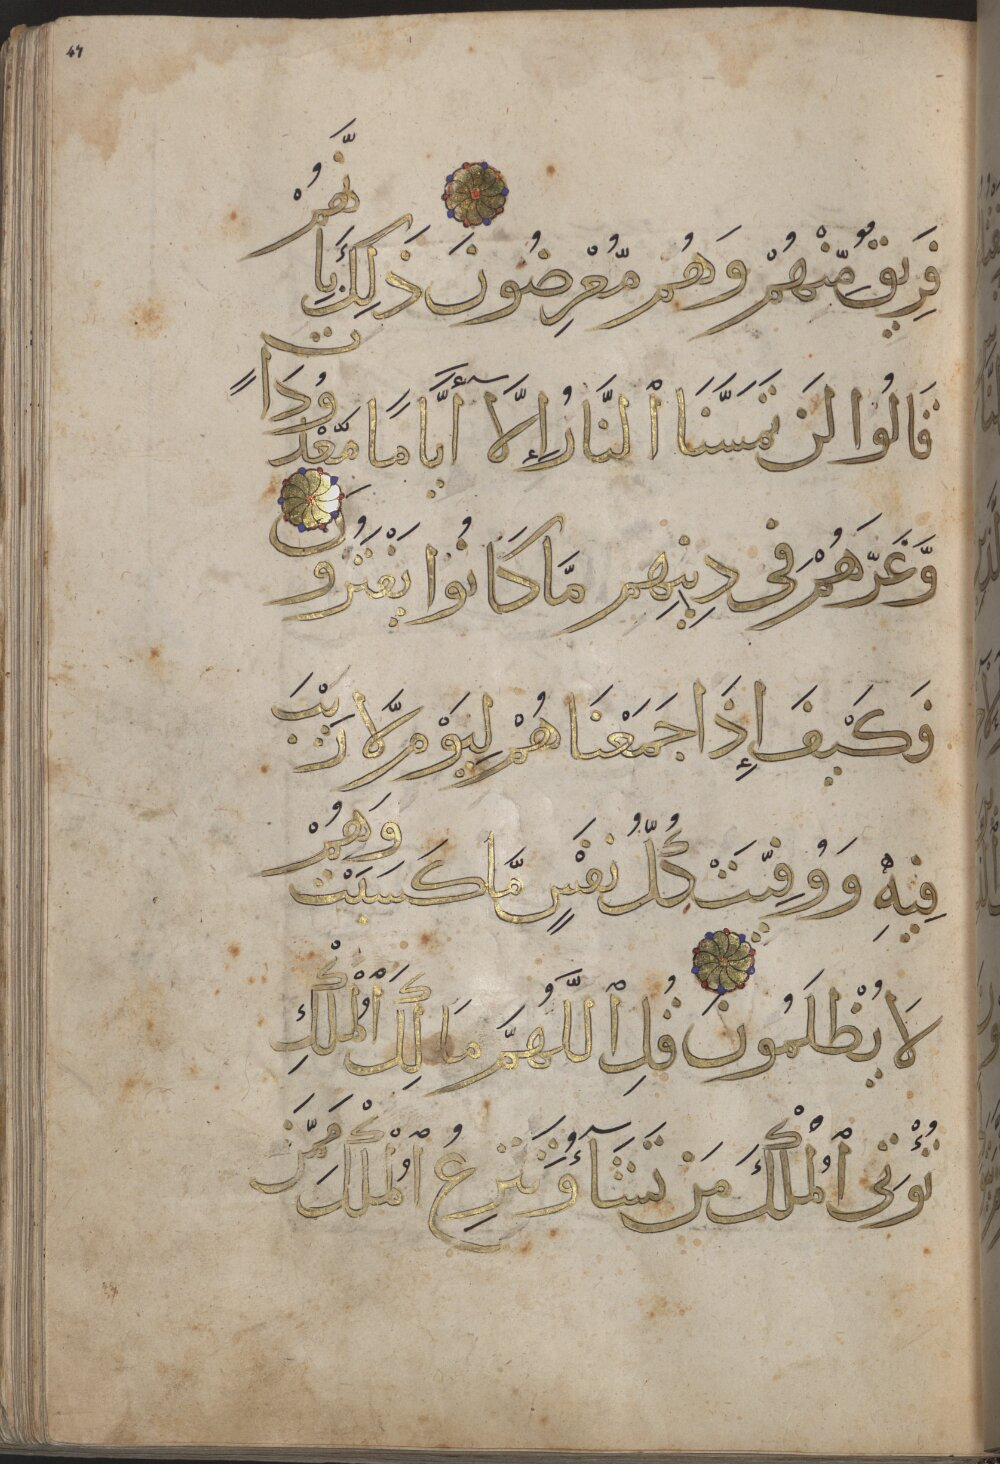 47
فَرِيقٌ مِّنْهُمْ وَهُم مُّعْرِضُونَ ذَٰلِكَ بِأَنَّهُمْ
قَالُوا لَن تَمَسَّنَا ٱلنَّارُ إِلَّآ أَيَّامًا مَّعْدُودَاتٍ
وَّغَرَّهُمْ فِى دِينِهِم مَّا كَانُوا يَفْتَرُونَ
فَكَيْفَ إِذَا جَمَعْنَاهُمْ لِيَوْمٍ لَّا رَيْبَ
فِيهِ وَوُفِّيَتْ كُلُّ نَفْسٍ مَّا كَسَبَتْ وَهُمْ
لَا يُظْلَمُونَ قُلِ ٱللَّهُمَّ مَالِكَ ٱلْمُلْكِ
تُؤْتِى ٱلْمُلْكَ مَن تَشَآءُ وَتَنزِعُ ٱلْمُلْكَ مِمَّن